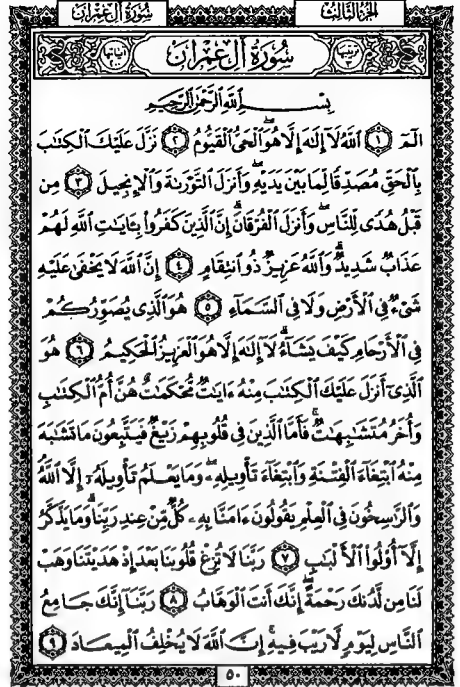 الجزء الثالث
سورة آل عمران
ترتيبها ٣
سُورَةُ آلِ عِمْرَانَ
آياتها
بِسْمِ ٱللَّهِ ٱلرَّحْمَٰنِ ٱلرَّحِيمِ
الٓمٓ ١ ٱللَّهُ لَآ إِلَٰهَ إِلَّا هُوَ ٱلْحَىُّ ٱلْقَيُّومُ ٢ نَزَّلَ عَلَيْكَ ٱلْكِتَٰبَ
بِٱلْحَقِّ مُصَدِّقًا لِّمَا بَيْنَ يَدَيْهِ وَأَنزَلَ ٱلتَّوْرَىٰةَ وَٱلْإِنجِيلَ ٣ مِن
قَبْلُ هُدًى لِّلنَّاسِ وَأَنزَلَ ٱلْفُرْقَانَ ۗ إِنَّ ٱلَّذِينَ كَفَرُوا۟ بِـَٔايَٰتِ ٱللَّهِ لَهُمْ
عَذَابٌ شَدِيدٌ ۗ وَٱللَّهُ عَزِيزٌ ذُو ٱنتِقَامٍ ٤ إِنَّ ٱللَّهَ لَا يَخْفَىٰ عَلَيْهِ
شَىْءٌ فِى ٱلْأَرْضِ وَلَا فِى ٱلسَّمَآءِ ٥ هُوَ ٱلَّذِى يُصَوِّرُكُمْ
فِى ٱلْأَرْحَامِ كَيْفَ يَشَآءُ ۚ لَآ إِلَٰهَ إِلَّا هُوَ ٱلْعَزِيزُ ٱلْحَكِيمُ ٦ هُوَ
ٱلَّذِىٓ أَنزَلَ عَلَيْكَ ٱلْكِتَٰبَ مِنْهُ ءَايَٰتٌ مُّحْكَمَٰتٌ هُنَّ أُمُّ ٱلْكِتَٰبِ
وَأُخَرُ مُتَشَٰبِهَٰتٌ ۖ فَأَمَّا ٱلَّذِينَ فِى قُلُوبِهِمْ زَيْغٌ فَيَتَّبِعُونَ مَا تَشَٰبَهَ
مِنْهُ ٱبْتِغَآءَ ٱلْفِتْنَةِ وَٱبْتِغَآءَ تَأْوِيلِهِۦ ۗ وَمَا يَعْلَمُ تَأْوِيلَهُۥٓ إِلَّا ٱللَّهُ
وَٱلرَّٰسِخُونَ فِى ٱلْعِلْمِ يَقُولُونَ ءَامَنَّا بِهِۦ كُلٌّ مِّنْ عِندِ رَبِّنَا ۗ وَمَا يَذَّكَّرُ
إِلَّآ أُو۟لُوا۟ ٱلْأَلْبَٰبِ ٧ رَبَّنَا لَا تُزِغْ قُلُوبَنَا بَعْدَ إِذْ هَدَيْتَنَا وَهَبْ
لَنَا مِن لَّدُنكَ رَحْمَةً ۚ إِنَّكَ أَنتَ ٱلْوَهَّابُ ٨ رَبَّنَآ إِنَّكَ جَامِعُ
ٱلنَّاسِ لِيَوْمٍ لَّا رَيْبَ فِيهِ ۚ إِنَّ ٱللَّهَ لَا يُخْلِفُ ٱلْمِيعَادَ ٩
٥٠